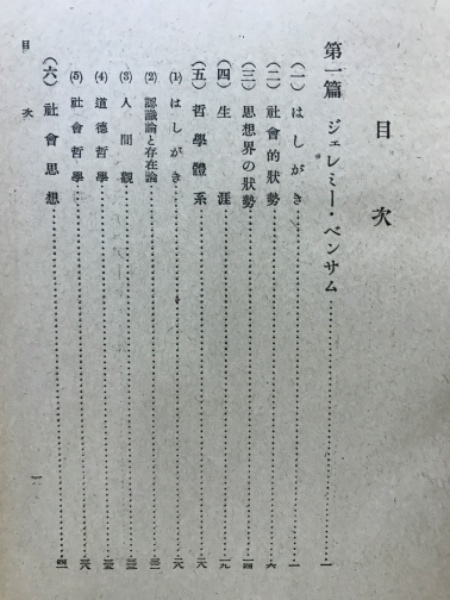 目次
第一篇 ジェレミー・ベンサム……一
(一) はしがき……一
(二) 社會的狀勢……六
(三) 思想界の狀勢……一四
(四) 生涯……一九
(五) 哲學體系……二六
(1) はしがき……二六
(2) 認識論と存在論……三二
(3) 人間觀……三三
(4) 道德哲學……三五
(5) 社會哲學……三八
(六) 社會思想……四一
目次
一